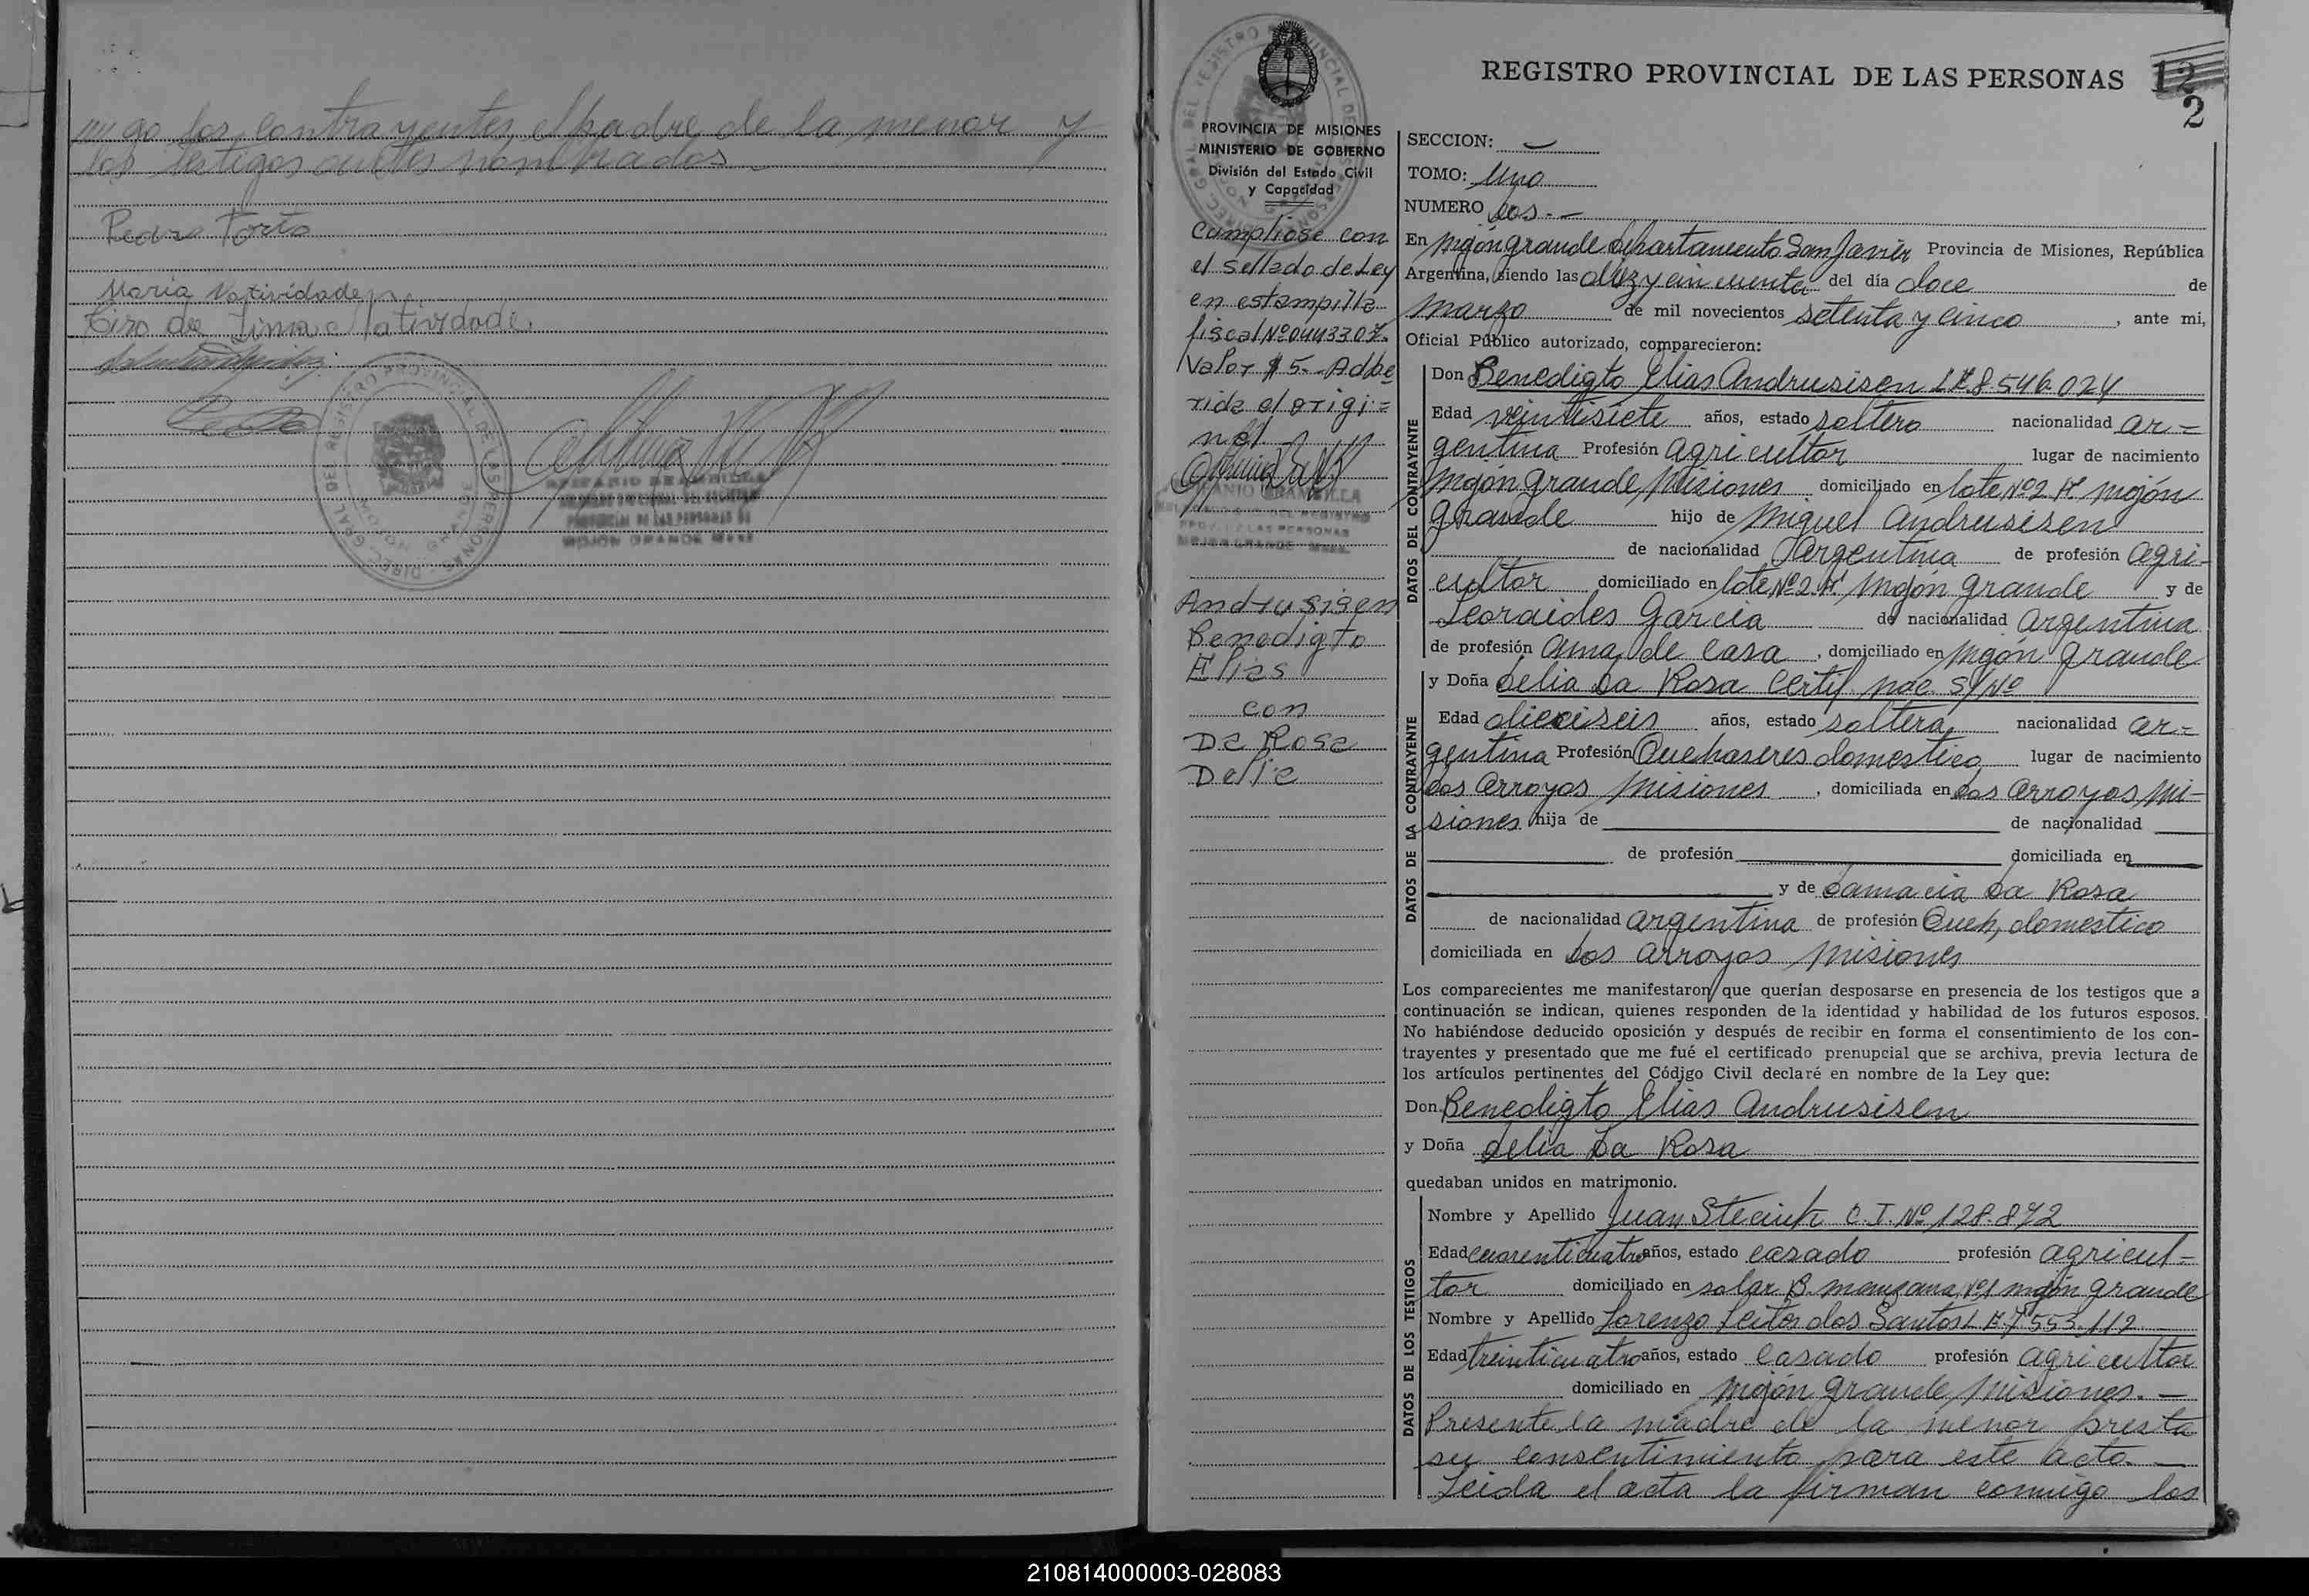 migo los contrayentes, el padre de la menor y
los testigos antes nombrados
Pedro
Maria Natividade
Ciro de Lima Natividade.
REGISTRO PROVINCIAL DE LAS PERSONAS
MOJON GRANDE
REGISTRO PROVINCIAL DE LAS PERSONAS
12
2
PROVINCIA DE MISIONES
MINISTERIO DE GOBIERNO
División del Estado Civil
y Capacidad
Cumpliose con
el sellado de Ley
en estampilla
fiscal Nº 0443307.
Valor $ 5.- Adhe
rida el origi=
nal
Andrusisen
Benedigto
Elias
con
Da Rosa
Delia
SECCION: —
TOMO: Uno
NUMERO Dos.—
En Mojón grande Departamento San Javier Provincia de Misiones, República
Argentina, siendo las diez y cincuenta del día doce de
Marzo de mil novecientos setenta y cinco, ante mi,
Oficial Público autorizado, comparecieron:
DATOS DEL CONTRAYENTE
Don Benedigto Elias Andrusisen L.E. 8.546.024
Edad veintisiete años, estado soltero nacionalidad ar=
gentina Profesión agricultor lugar de nacimiento
Mojón grande, Misiones domiciliado en lote Nº 2 A mojón
grande hijo de Miguel Andrusisen
de nacionalidad Argentina de profesión agri-
cultor domiciliado en lote Nº 2 A Mojón grande y de
Leoraides Garcia de nacionalidad argentina
de profesión ama de casa, domiciliado en Mojón grande
DATOS DE LA CONTRAYENTE
y Doña Delia Da Rosa Certif. nac. S/Nº
Edad dieciseis años, estado soltera, nacionalidad ar=
gentina Profesión Quehaseres domestico lugar de nacimiento
Dos Arroyos Misiones, domiciliada en Dos Arroyos Mi-
siones hija de de nacionalidad
de profesión domiciliada en
y de Damacia Da Rosa
de nacionalidad argentina de profesión Queh, domestico
domiciliada en Dos Arroyos Misiones
Los comparecientes me manifestaron que querían desposarse en presencia de los testigos que a
continuación se indican, quienes responden de la identidad y habilidad de los futuros esposos.
No habiéndose deducido oposición y después de recibir en forma el consentimiento de los con-
trayentes y presentado que me fué el certificado prenupcial que se archiva, previa lectura de
los artículos pertinentes del Código Civil declaré en nombre de la Ley que:
Don Benedigto Elias Andrusisen
y Doña Delia Da Rosa
quedaban unidos en matrimonio.
DATOS DE LOS TESTIGOS
Nombre y Apellido Juan C.I. Nº 128.872
Edad cuarenticuatro años, estado casado profesión agricul=
tor domiciliado en solar B. manzana Nº 1 mojón grande
Nombre y Apellido Lorenzo dos Santos L.E. 7.553.112
Edad treinticuatro años, estado casado profesión agricultor
domiciliado en Mojón grande, Misiones.—
Presente la madre de la menor presta
su consentimiento para este acto.—
Leida el acta la firman conmigo los
210814000003-028083